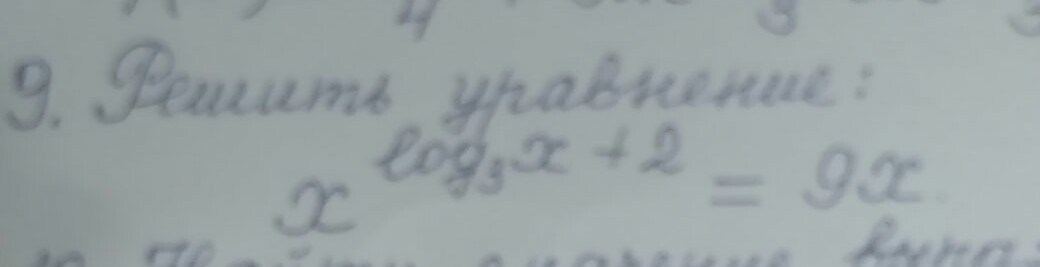 4 3 3
9. Решить уравнение:
x^{log_3 x + 2} = 9x.